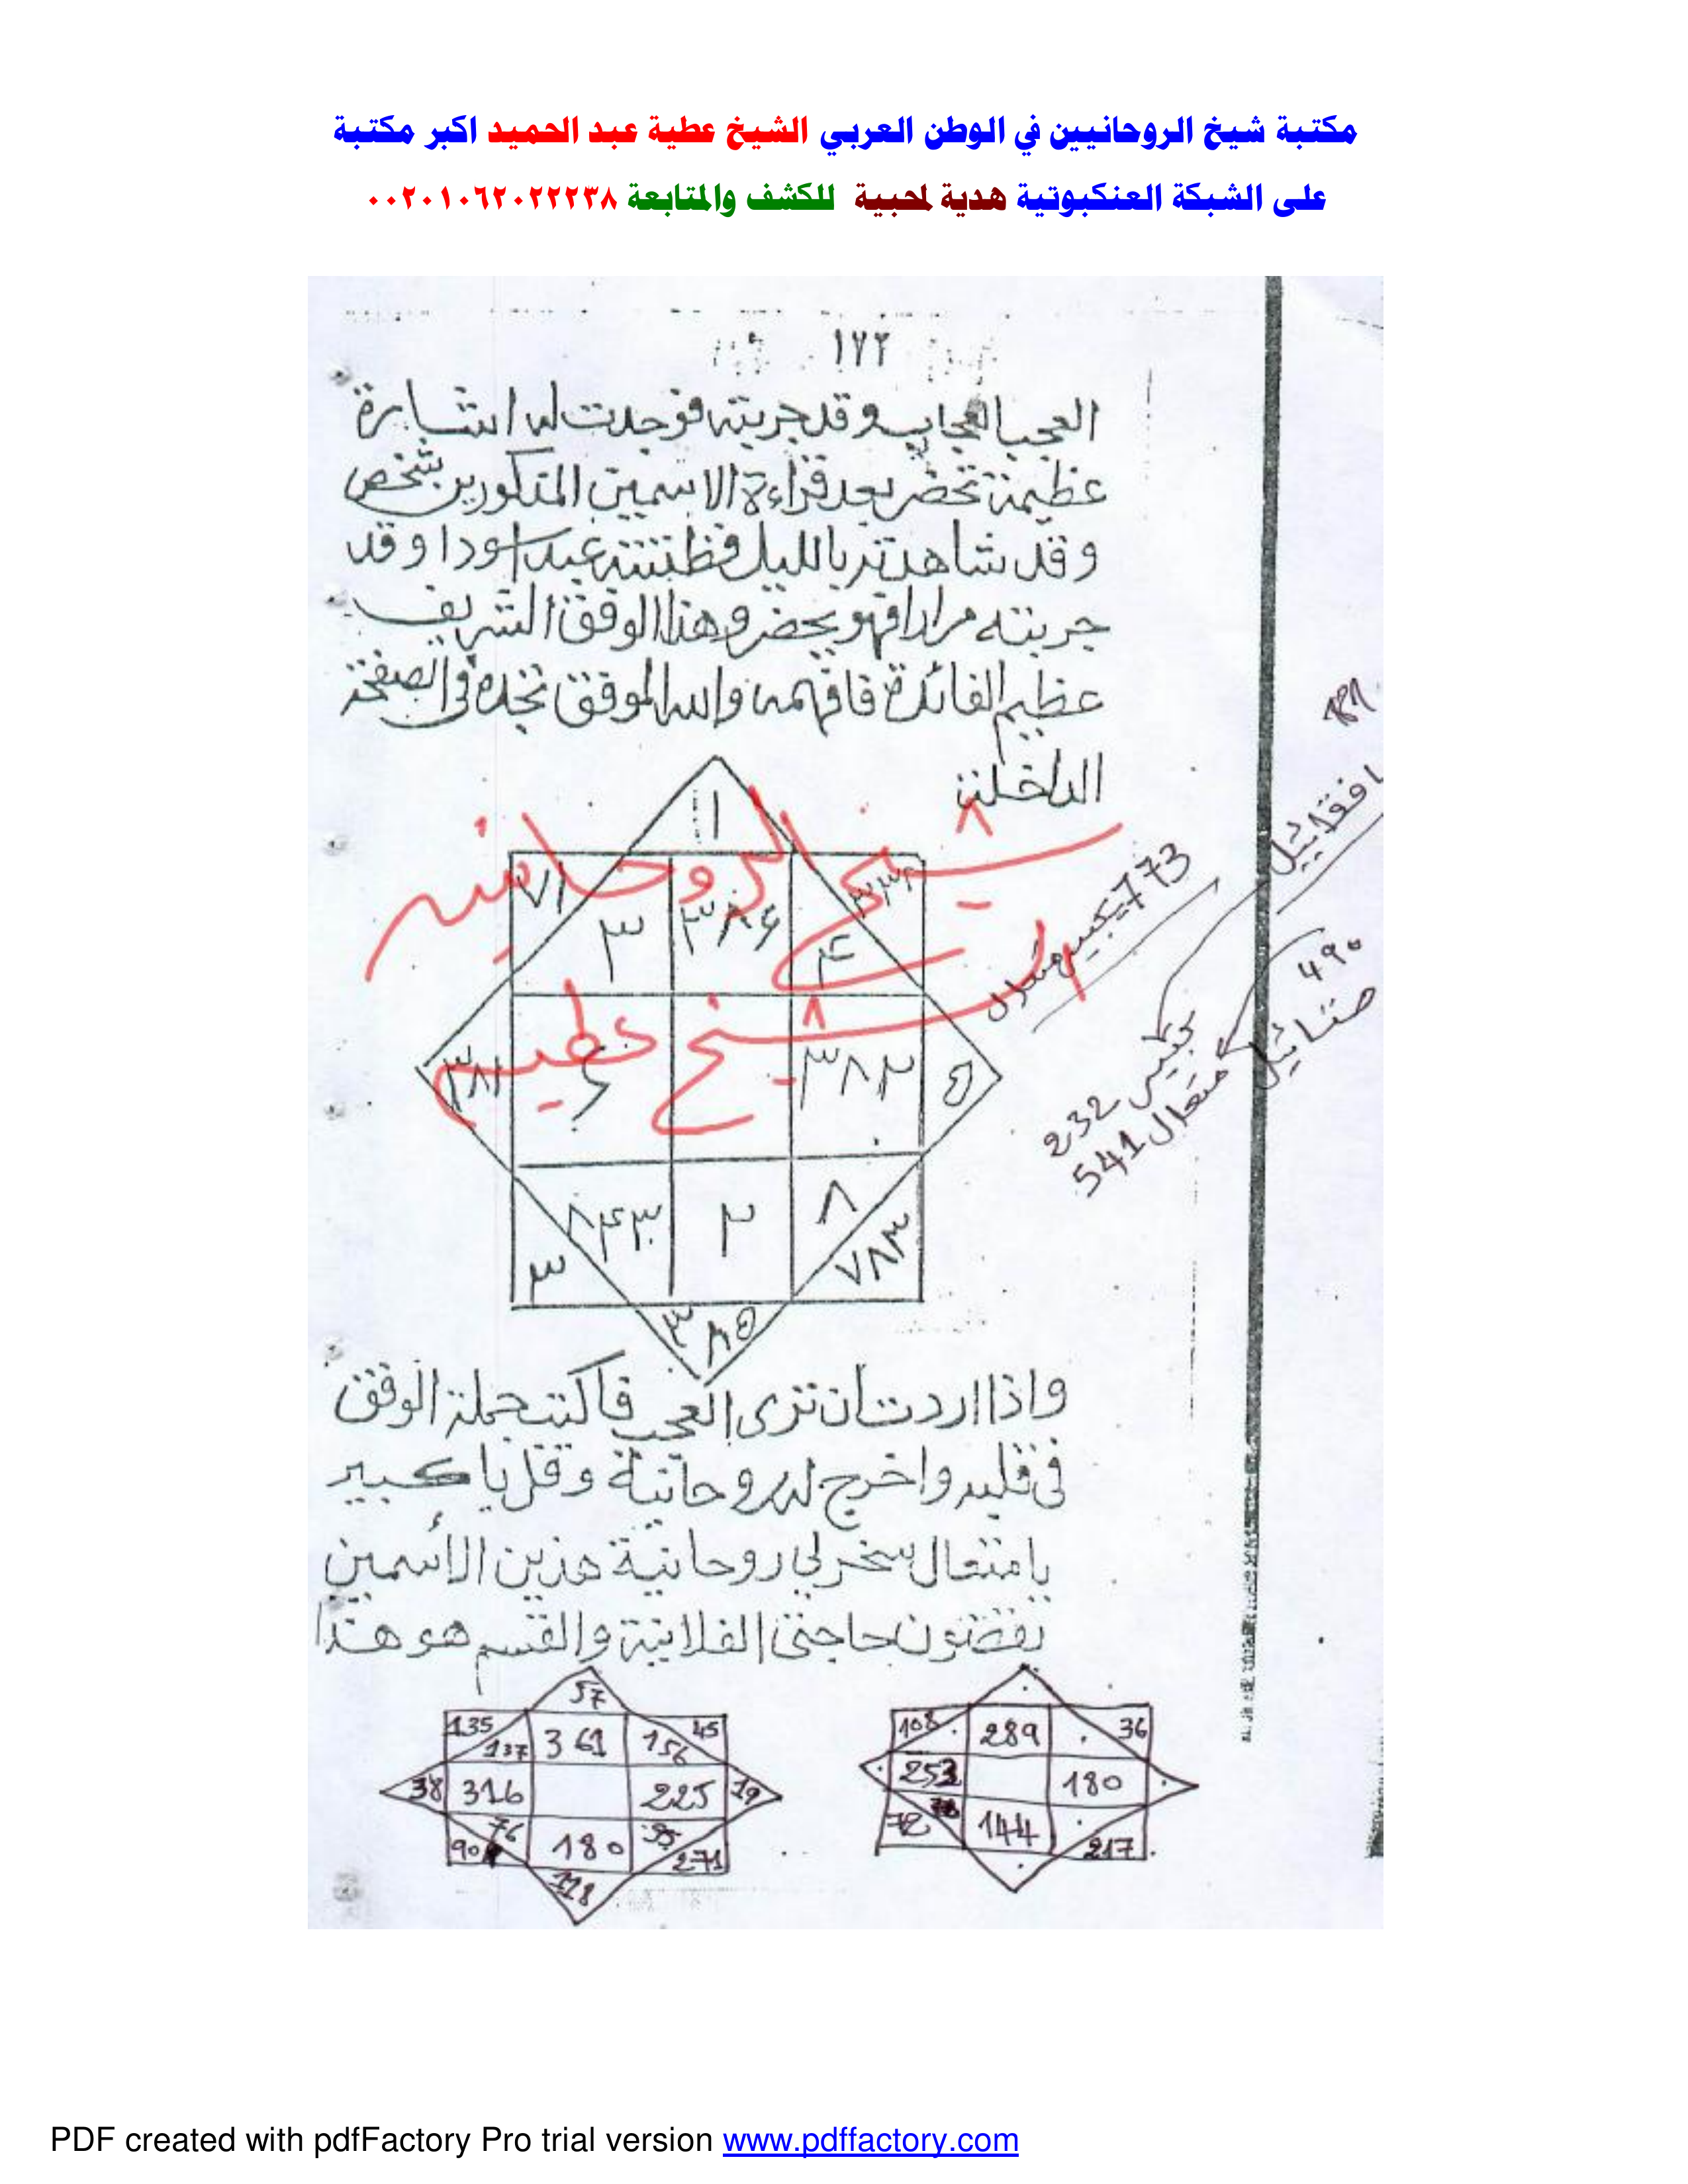 مكتبة شيخ الروحانيين في الوطن العربي الشيخ عطية عبد الحميد اكبر مكتبة
على الشبكة العنكبوتية هدية لمحبية للكشف والمتابعة ٠٠٢٠١٠٦٢٠٢٢٢٣٨
١٧٢
العجب العجاب وقد جربته فوجدت له اشارة
عظيمة تحضر بعد قراءة الاسمين المذكورين بشخص
وقد شاهدته بالليل فظننته عبد اسودا وقد
جربته مرارا فهو يحضر وهذا الوفق الشريف
عظيم الفائدة فافهمه والله الموفق تجده في الصفحة
الداخلة
١
شيخ الروحانيه
٧١
٣
٣٨٤
٤
773 كبير متعال
الشيخ عطيه
٣٨٢
٥
490
كبير 232
متعال 541
٨٤٣
٢
٨
٣
٧٨٣
٣٨٥
واذا اردت ان ترى العجب فاكتب جملة الوفق
في قلبه واخرج له روحانية وقل يا كبير
يا متعال سخر لي روحانية هذين الأسمين
يقضون حاجتي الفلانية والقسم هو هذا
57
135 137 361 156 45
38 316 225 19
76 90 180 95 271
108 289 36
253 180
72 144 217
PDF created with pdfFactory Pro trial version www.pdffactory.com